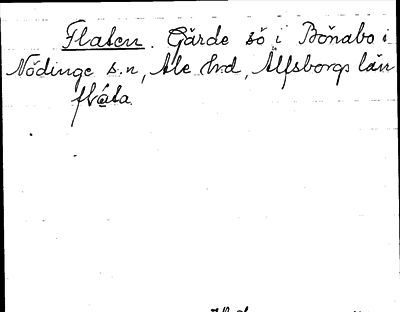 Flaten. Gärde sö i Bönabo i
Nödinge s.n, Ale hrd, Älfsborgs län
flåta